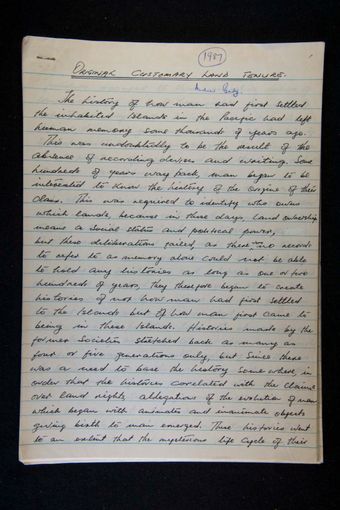 1987
ORIGINAL CUSTOMARY LAND TENURE.
The history of how man had first settled
the inhabited Islands in the Pacific had left
human memory some thousands of years ago.
This was undoubtably to be the result of the
absence of recording devices and writing. Some
hundreds of years way back, man began to be
interested to know the history of the origine of their
clans. This was required to identify who owns
which lands, because in those days, land ownership
means a social status and political power,
but these deliberations failed, as there no records
to refer to as memory alone could not be able
to hold any histories as long as one or two
hundreds of years, they therefore began to create
histories of not how man had first settled
to the Islands but of how man first came to
being in these Islands. Histories made by the
former societies stretched back as many as
four or five generations only, but since there
was a need to base the history somewhere, in
order that the histories correlated with the claims
over land rights, allegations of the evolution of man
which began with animates and inanimate objects
giving birth to man emerged. These histories went
to an extent that the mysterious life cycle of their